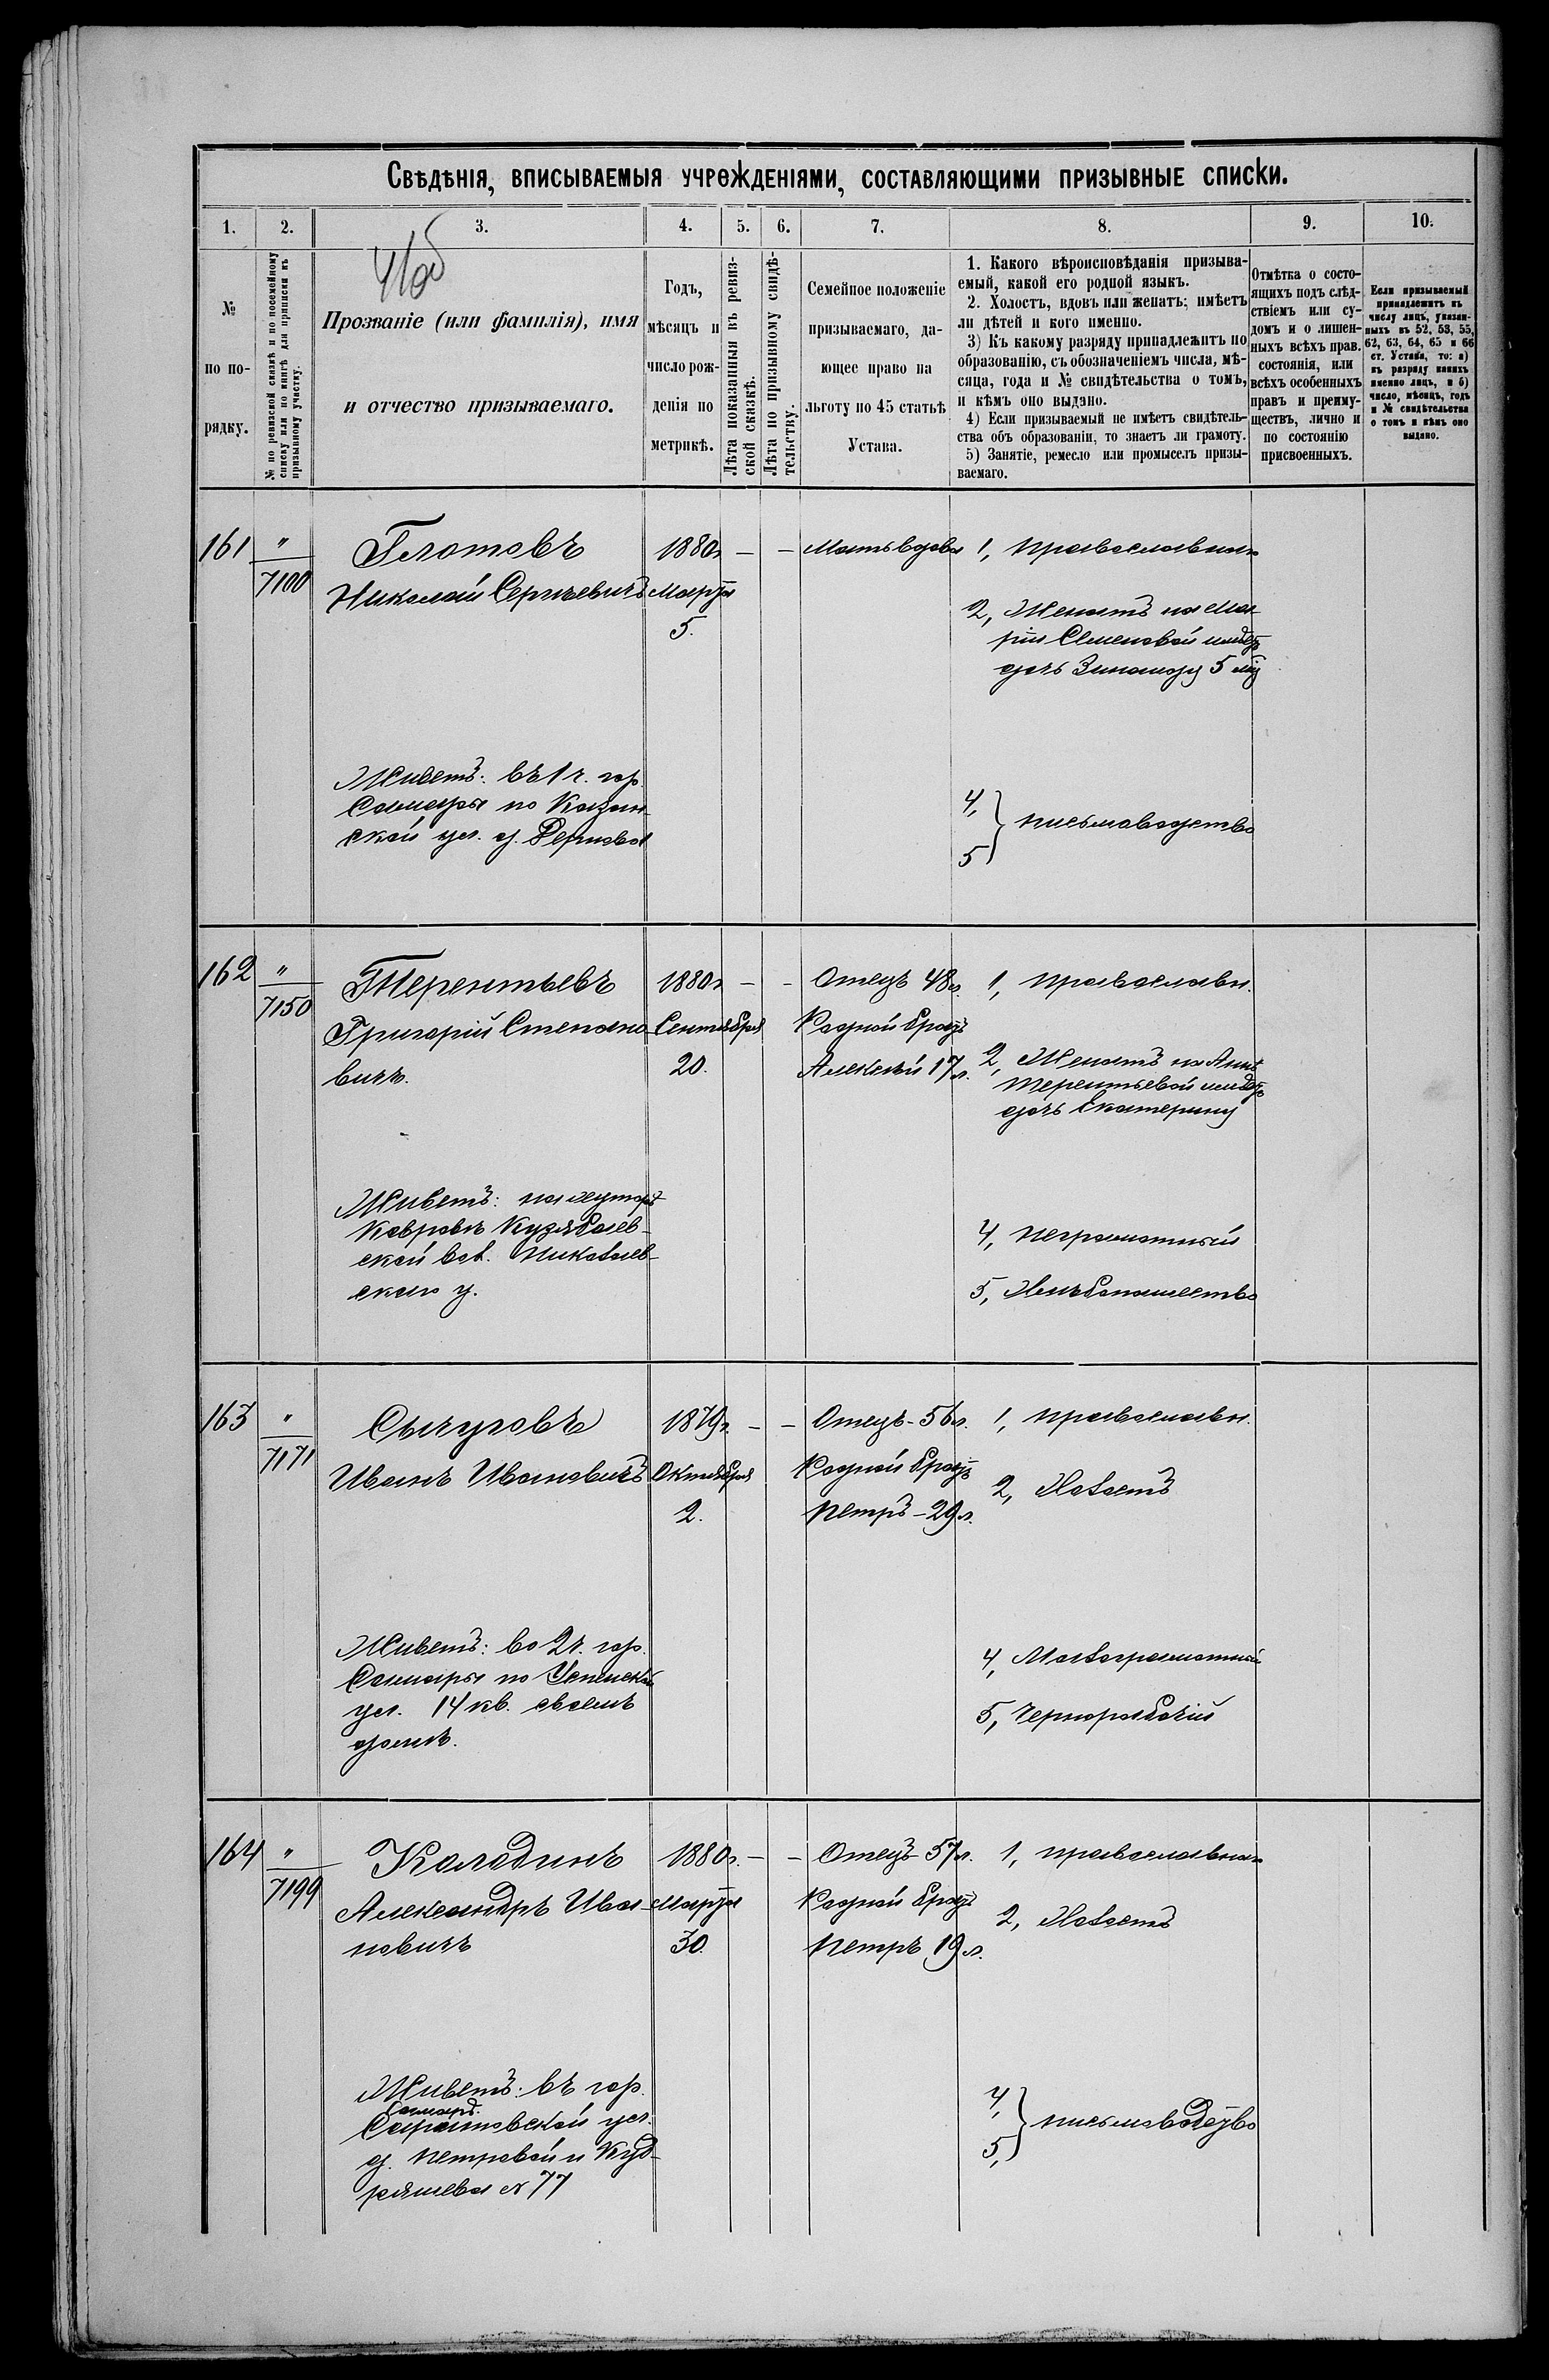 Свѣдѣнія, вписываемыя учрежденіями, составляющими призывные списки.
1. 2. 3. 4. 5. 6. 7. 8. 9. 10.
№
по по-
рядку.
№ по ревизской сказкѣ и по посемейному
списку или по книгѣ для приписки къ
призывному участку.
41об
Прозваніе (или фамилія), имя
и отчество призываемаго.
Годъ,
мѣсяцъ и
число рож-
денія по
метрикѣ.
Лѣта показанныя въ ревиз-
ской сказкѣ.
Лѣта по призывному свидѣ-
тельству.
Семейное положеніе
призываемаго, да-
ющее право на
льготу по 45 статьѣ
Устава.
1. Какого вѣроисповѣданія призыва-
емый, какой его родной языкъ.
2. Холостъ, вдовъ или женатъ; имѣетъ
ли дѣтей и кого именно.
3) Къ какому разряду принадлежитъ по
образованію, съ обозначеніемъ числа, мѣ-
сяца, года и № свидѣтельства о томъ,
и кѣмъ оно выдано.
4) Если призываемый не имѣетъ свидѣтель-
ства объ образованіи, то знаетъ ли грамоту.
5) Занятіе, ремесло или промыселъ призы-
ваемаго.
Отмѣтка о состо-
ящихъ подъ слѣд-
ствіемъ или су-
домъ и о лишен-
ныхъ всѣхъ прав.
состоянія, или
всѣхъ особенныхъ
правъ и преиму-
ществъ, лично и
по состоянію
присвоенныхъ.
Если призываемый
принадлежитъ къ
числу лицъ, указан-
ныхъ въ 52, 53, 55,
62, 63, 64, 65 и 66
ст. Устава, то: а)
къ разряду какихъ
именно лицъ, и б)
число, мѣсяцъ, годъ
и № свидѣтельства
о томъ и кѣмъ оно
выдано.
161 " Глотовъ 1880г. — — Мать вдова 1, православнаго
7100 Николай Сергѣевичъ Марта
5.
2, Женатъ на Ма-
ріи Семеновой имѣетъ
дочь Зинаиду 5 м.
Живетъ: въ 1 ч. гор.
Самары по Казан-
ской ул. д.
4,
5 } письмоводство
162 " Терентьевъ 1880г. — — Отецъ 48 л. 1, православн.
7150 Григорій Степано- Сентября Родной братъ
вичъ. 20. Алексѣй 17 л.
2, Женатъ на Аннѣ
Терентьевой имѣетъ
дочь Екатерину
Живетъ: на хуторѣ
Ковровъ Кузябаев-
ской вол. Николаев-
скаго у.
4, неграмотный
5, Хлѣбопашество
163 " Сычуговъ 1879г. — — Отецъ - 56 л. 1, православн.
7171 Иванъ Ивановичъ Октября Родной братъ
2. Петръ - 29 л.
2, Холостъ
Живетъ: во 2 ч. гор.
Самары по Успенской
ул. 14 кв. своемъ
домѣ.
4, Малограмотный
5, Чернорабочій
164 " Каладинъ 1880г. — — Отецъ 57 л. 1, православнаго
7199 Александръ Ива- Марта Родной братъ
новичъ 30. Петръ 19 л.
2, Холостъ
Живетъ: въ гор.
Самарѣ.
Саратовской ул.
д. Петровой и Куд-
ряшева № 77
4,
5, } письмоводство